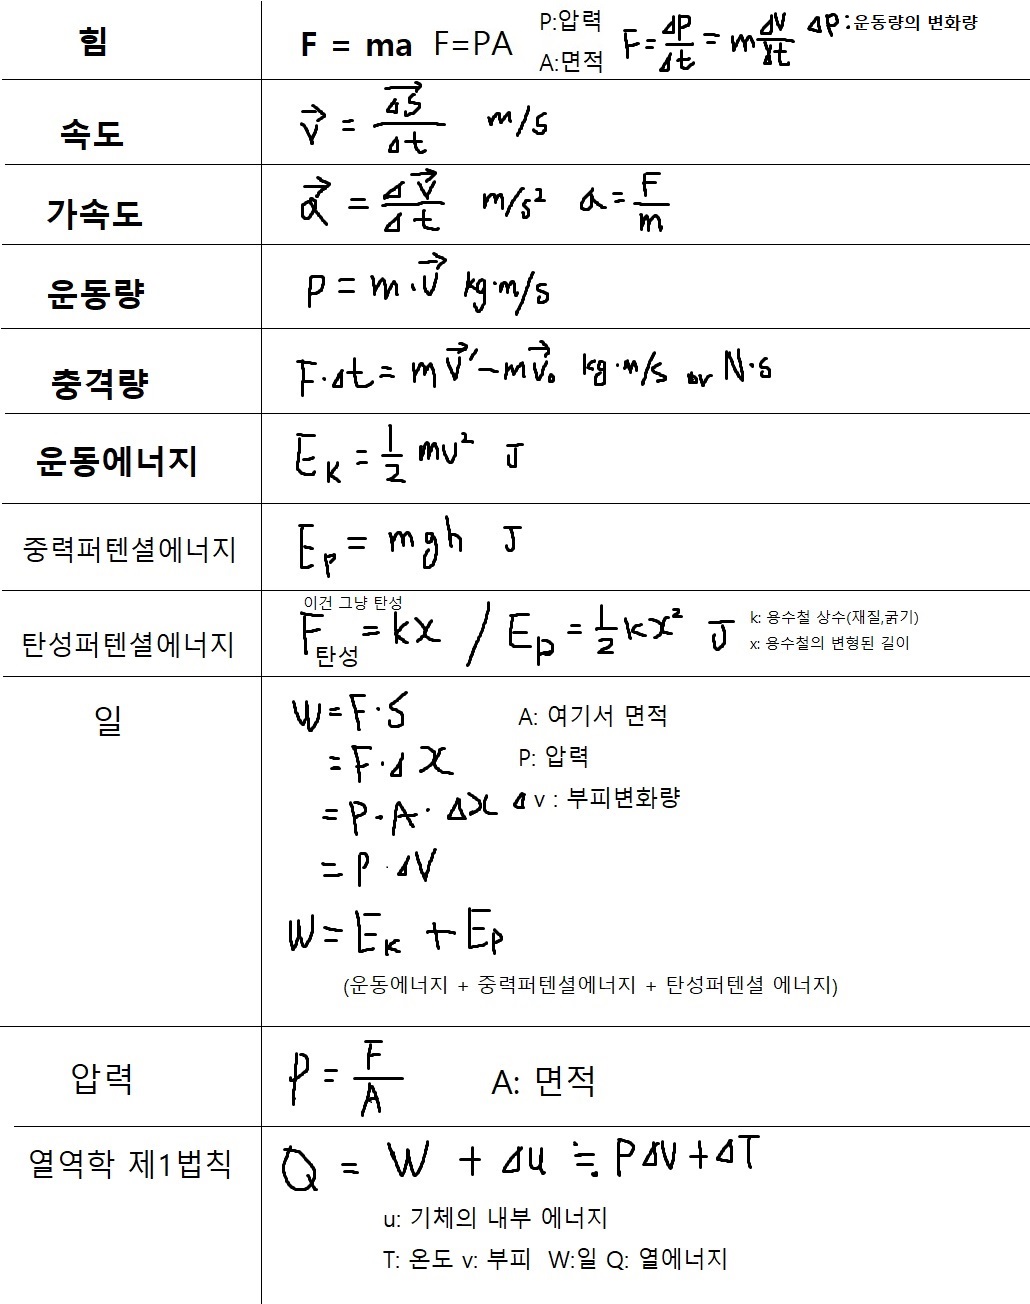 힘 F = ma F=PA P:압력 A:면적 F=Δp/Δt=mΔv/Δt Δp:운동량의 변화량
속도 v⃗ = Δs⃗/Δt m/s
가속도 a⃗ = Δv⃗/Δt m/s² a=F/m
운동량 p=m·v⃗ kg·m/s
충격량 F·Δt=mv⃗′-mv⃗₀ kg·m/s or N·s
운동에너지 Eₖ=1/2mv² J
중력퍼텐셜에너지 Eₚ=mgh J
이건 그냥 탄성
탄성퍼텐셜에너지 F탄성=kx / Eₚ=1/2kx² J
k: 용수철 상수(재질,굵기)
x: 용수철의 변형된 길이
일 W=F·S A: 여기서 면적
=F·Δx P: 압력
=P·A·Δx Δv : 부피변화량
=P·ΔV
W=Eₖ+Eₚ
(운동에너지 + 중력퍼텐셜에너지 + 탄성퍼텐셜 에너지)
압력 P=F/A A: 면적
열역학 제1법칙 Q = W + Δu ≒ PΔV+ΔT
u: 기체의 내부 에너지
T: 온도 v: 부피 W:일 Q: 열에너지